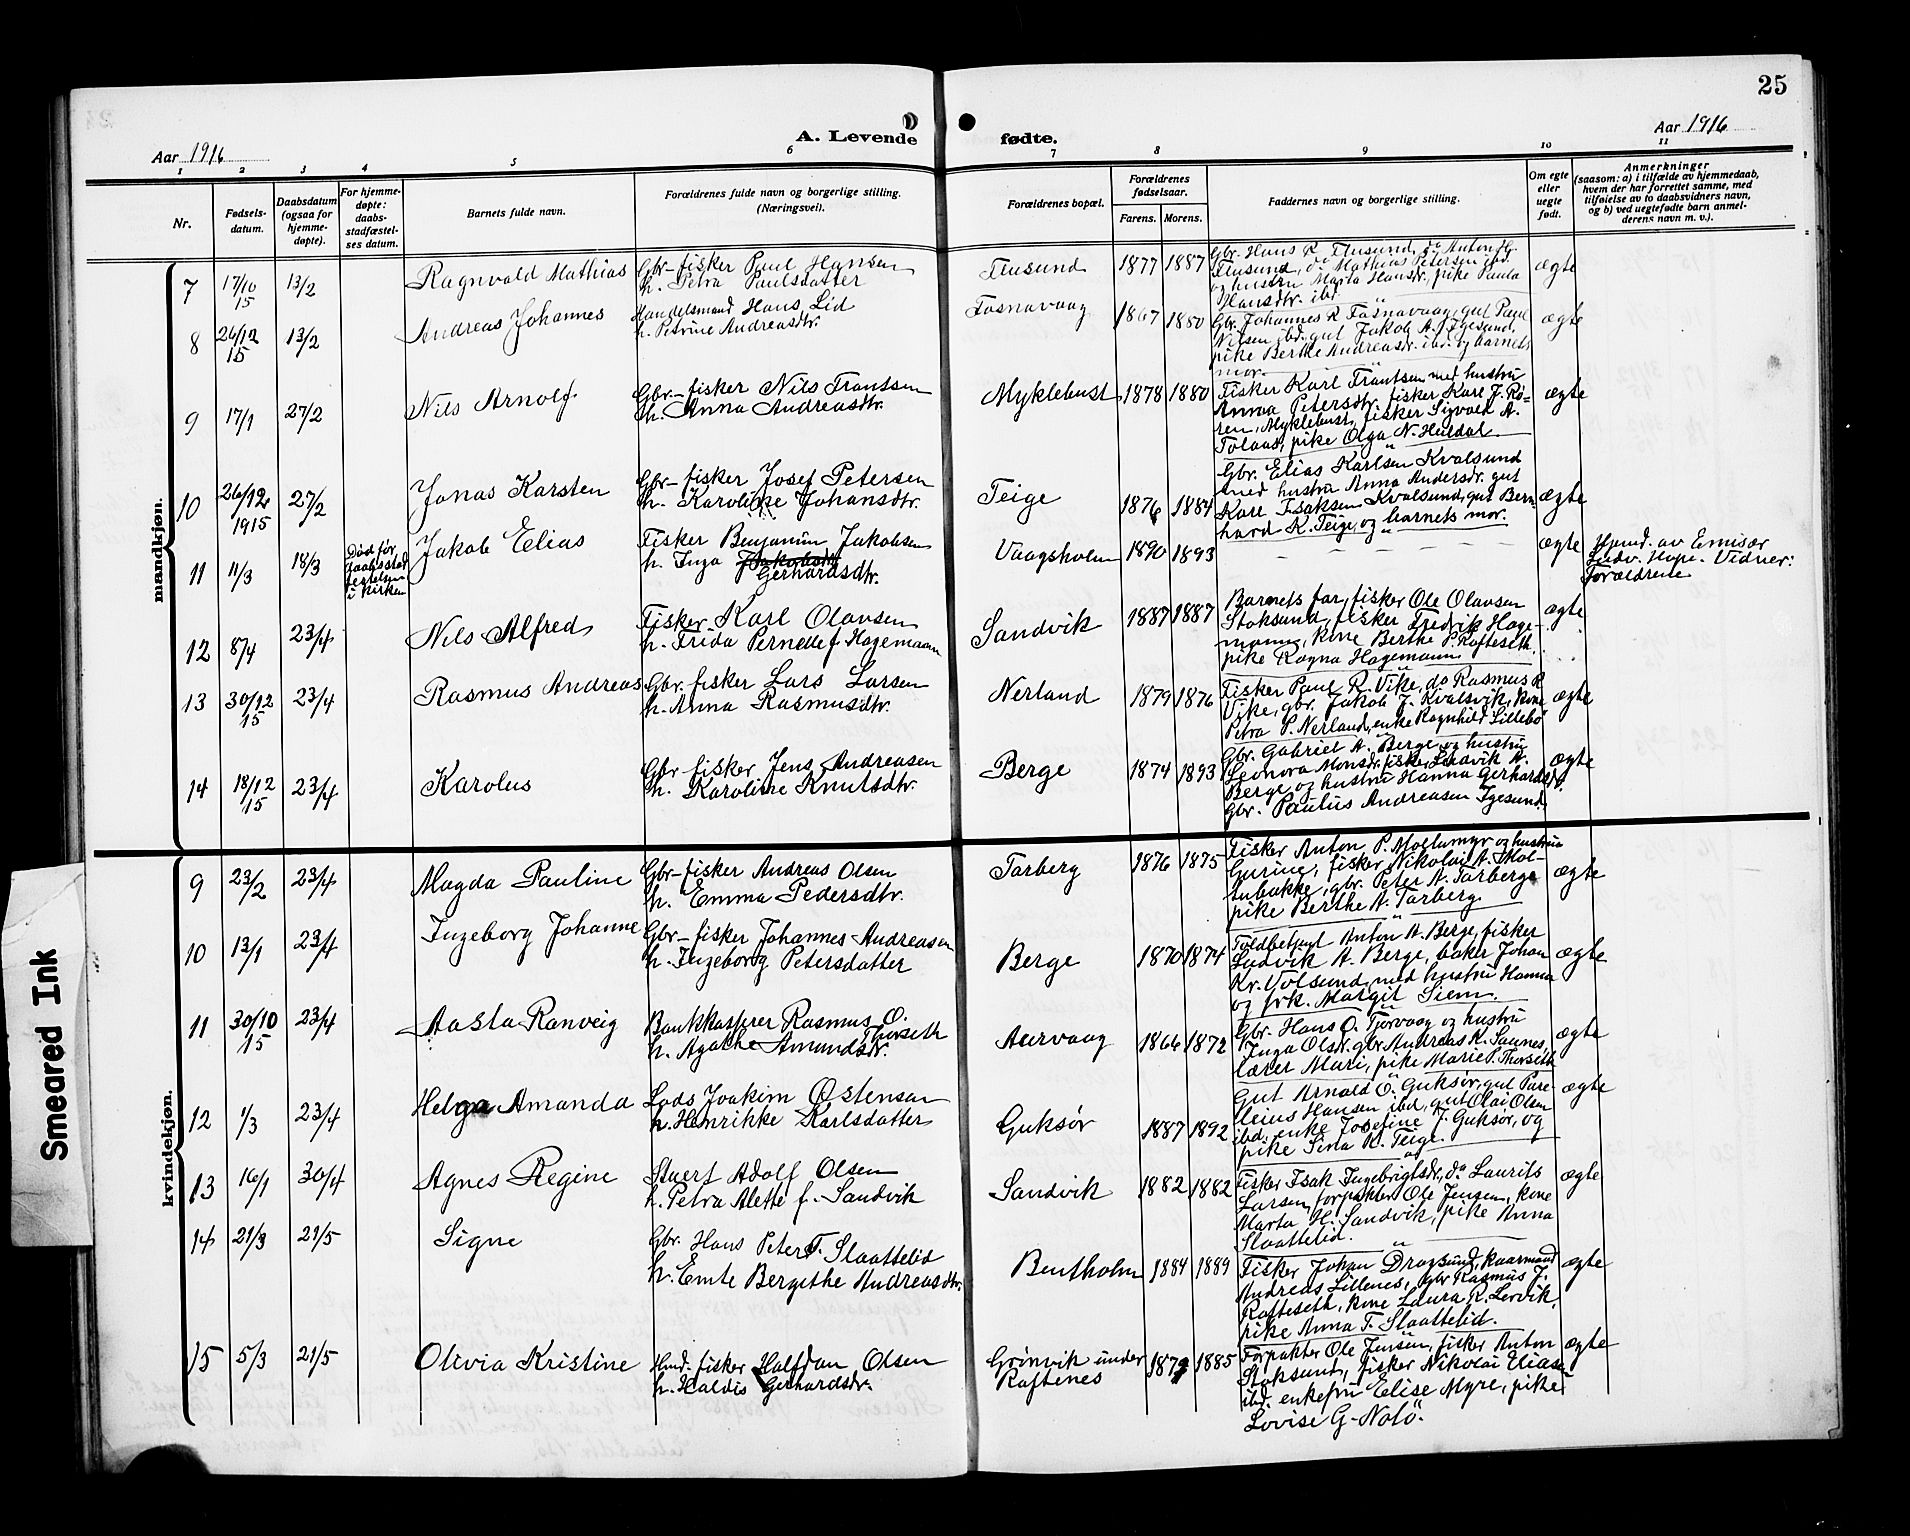 25
Aar 1916
A. Levende fødte.
Aar 1916
1 2 3 4 5 6 7 8 9 10 11
Nr.
Fødsels-
datum.
Daabsdatum
(ogsaa for
hjemme-
døpte).
For hjemme-
døpte:
daabs-
stadfæstel-
ses datum.
Barnets fulde navn.
Forældrenes fulde navn og borgerlige stilling.
(Næringsvei).
Forældrenes bopæl.
Forældrenes
fødselsaar.
Farens. Morens.
Faddernes navn og borgerlige stilling.
Om egte
eller
uegte
født.
Anmerkninger
(saasom: a) i tilfælde av hjemmedaab,
hvem der har forrettet samme, med
tilføielse av to daabsvidners navn,
og b) ved uegtefødte barn anmel-
derens navn m. v.).
mandkjøn.
7 17/10 15 13/2 Ragnvald Mathias
Gbr-fisker Paul Hansen
h. Petra Paulsdatter
Flusund 1877 1887
Gbr. Hans R. Flusund, do Anton G.
Flusund, do Mathias Petersen ibd.
og hustru Marta Hansdr, pike Paula
Hansdtr. ibd.
ægte
8 26/12 15 13/2 Andreas Johannes
Handelsmand Hans Lid
h. Petrine Andreasdtr.
Fosnavaag 1867 1880
Gbr. Johannes R. Fosnavaag, gut Paul
Nilsen ibd, gut Jakob A. Igesund,
pike Berthe Andreasdr. ibd. og barnets
mor.
ægte
9 17/1 27/2 Nils Arnolf
Gbr-fisker Nils Frantsen
h. Anna Andreasdtr.
Myklebust 1878 1880
Fisker Karl Frantsen med hustru
Anna Petersdtr, fisker Karl J. Rö-
ren, Myklebust, fisker Sigvald A.
Tolaas, pike Olga N. Huldal
ægte
10 26/12 1915 27/2 Jonas Karsten
Gbr-fisker Josef Petersen
h. Karoline Johansdtr.
Teige 1876 1884
Gbr. Elias Karlsen Kvalsund
med hustru Anna Andersdr. gut
Karl Isaksen Kvalsund, gut Bern-
hard K. Teige og barnets mor.
ægte
11 11/3 18/3
Död før
daabsstad
festelsen
i kirken
Jakob Elias
Fisker Benjamin Jakobsen
h. Inga Jakobsdtr
Gerhardsdtr.
Vaagsholm 1890 1893
ægte
Hjmd. av Emisær
Ludv. Hope. Vidner:
Forældrene
12 8/4 23/4 Nils Alfred
Fisker Karl Olausen
h. Frida Pernelle f. Hagemann
Sandvik 1887 1887
Barnets far, fisker Ole Olausen
Stoksund, fisker Fredrik Hage-
mann, kone Berthe P. Rafteseth
pike Ragna Hagemann
ægte
13 30/12 15 23/4 Rasmus Andreas
Gbr. fisker Lars Larsen
h. Anna Rasmusdtr.
Nerland 1879 1876
Fisker Paul R. Vike, do Rasmus R
Vike, gbr. Jakob J. Kvalsvik, kone
Petra P. Nerland, enke Ragnhild Lillebö
ægte
14 18/12 15 23/4 Karolus
Gbr-fisker Jens Andreasen
h. Karoline Knutsdtr.
Berge 1874 1893
Gbr. Gabriel A. Berge og hustru
Leonora Monsdr. fisker Ludvik A.
Berge og hustru Hanna Gerhardsdr.
Gbr. Paulus Andreasen Igesund.
ægte
kvindekjøn.
9 23/2 23/4 Magda Pauline
Gbr-fisker Andreas Olsen
h. Emma Pedersdtr.
Tarberg 1876 1875
Fisker Anton P. Moltumyr og hustru
Gurine, fisker Nikolai A. Mol-
tubakke, gbr. Peter A. Tarberg
pike Berthe A. Tarberg.
ægte
10 13/1 23/4 Ingeborg Johanne
Gbr-fisker Johannes Andreasen
h. Ingeborg Petersdatter
Berge 1870 1874
Toldbetjent Anton A. Berge, fisker
Ludvik A. Berge, baker Johan
Kr. Volsund med hustru Hanna
og frk. Margit Siem.
ægte
11 30/10 15 23/4 Aasta Ranveig
Bankkasserer Rasmus O.
Thorseth
h. Agathe Amundsdr.
Aurvaag 1866 1872
Gbr. Hans O. Tjorvaag og hustru
Inga Olsdr. gbr. Andreas K. Saunes,
lærer Mari, pike Marie P. Thorseth
ægte
12 1/3 23/4 Helga Amanda
Lods Joakim Østensen
h. Henrikke Karlsdatter
Guksør 1887 1892
Gut Arnald O. Guksør, gut Pare-
lius Hansen ibd, gut Olai Olsen
ibd. enke Josefine J. Guksør, og
pike Sina K. Teige.
ægte
13 16/1 30/4 Agnes Regine
Stuert Adolf Olsen
h. Petra Alette f. Sandvik
Sandvik 1882 1882
Fisker Isak Ingebrigtsdr, do Laurits
Larsen, forpakter Ole Jensen, kone
Marta H. Sandvik, pike Anna
Slaattelid.
ægte
14 21/3 21/5 Signe
Gbr. Hans Peter T. Slaattelid
h. Emte Bergithe Andreasdtr.
Bentholm 1884 1889
Fisker Johan Dragsund, kaarmand
Andreas Lillenes, gbr Rasmus J.
Rafteseth, kone Laura R. Lervik,
pike Anna T. Slaattelid.
ægte
15 5/3 21/5 Olivia Kristine
Hmd. fisker Halfdan Olsen
h. Haldis Gerhardsdr.
Grönvik under
Raftenes
1879 1885
Forpakter Ole Jensen, fisker Anton
Stoksund, fisker Nikolai Elias
ibd. enkefru Elise Myre, pike
Lovise G. Notö.
ægte
Smeared Ink